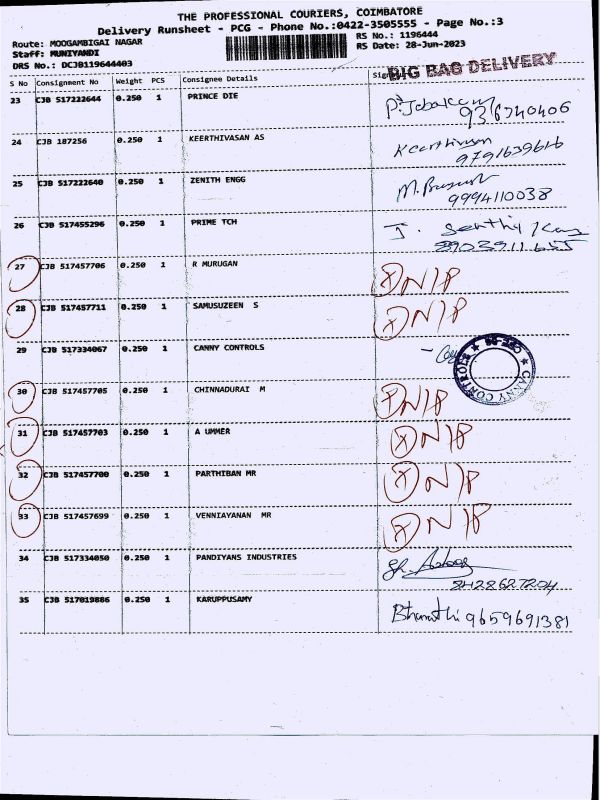 THE PROFESSIONAL COURIERS, COIMBATORE
Delivery Runsheet - PCG - Phone No.:0422-3505555 - Page No.:3
Route: MOOGAMBIGAI NAGAR RS No.: 1196444
Staff: MUNIYANDI RS Date: 28-Jun-2023
DRS No.: DCJB119644403
BIG BAG DELIVERY
S No Consignment No Weight PCS Consignee Details
23 CJB 517222644 0.250 1 PRINCE DIE
24 CJB 187256 0.250 1 KEERTHIVASAN AS Keerthivasan
25 CJB 517222640 0.250 1 ZENITH ENGG
9994110038
26 CJB 517455296 0.250 1 PRIME TCH
27 CJB 517457706 0.250 1 R MURUGAN
28 CJB 517457711 0.250 1 SAMUSUZEEN S
29 CJB 517334067 0.250 1 CANNY CONTROLS
CANNY CONTROLS
30 CJB 517457705 0.250 1 CHINNADURAI M
31 CJB 517457703 0.250 1 A UMMER
32 CJB 517457700 0.250 1 PARTHIBAN MR
33 CJB 517457699 0.250 1 VENNIAYANAN MR
34 CJB 517334050 0.250 1 PANDIYANS INDUSTRIES
35 CJB 517019886 0.250 1 KARUPPUSAMY Bharathi 9659691381